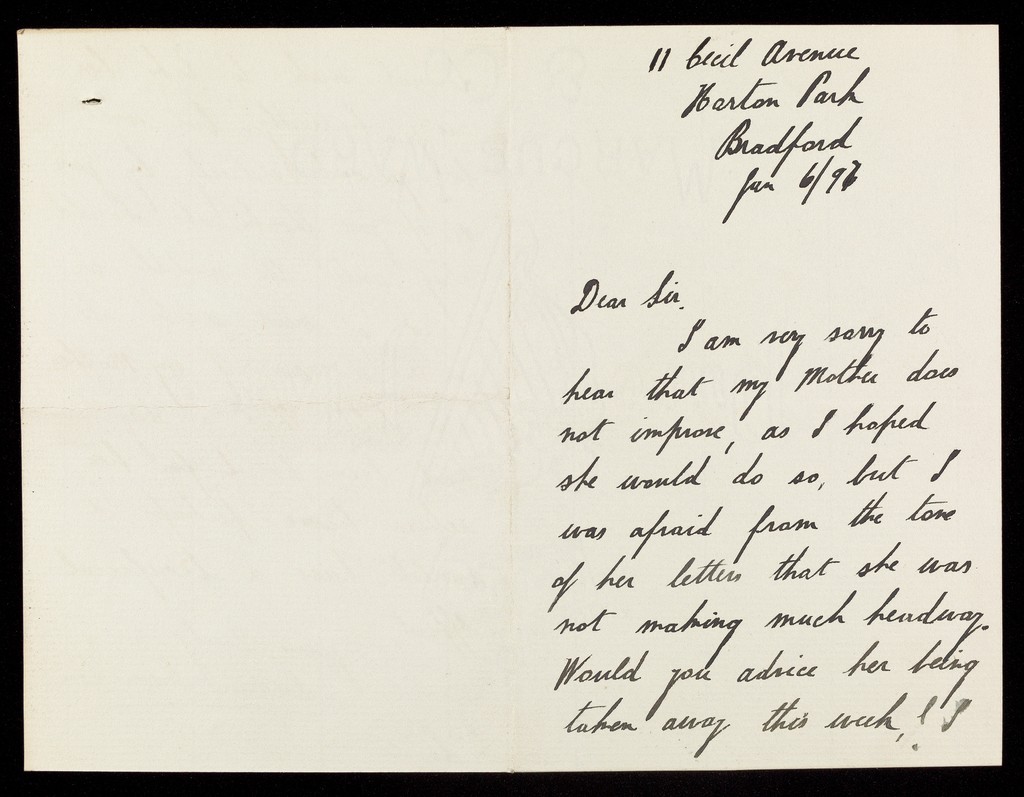 11 Cecil Avenue
Horton Park
Bradford
Jan 6/97
Dear Sir,
I am very sorry to
hear that my Mother does
not improve, as I hoped
she would do so, but I
was afraid from the tone
of her letters that she was
not making much headway.
Would you advice her being
taken away this week,! I